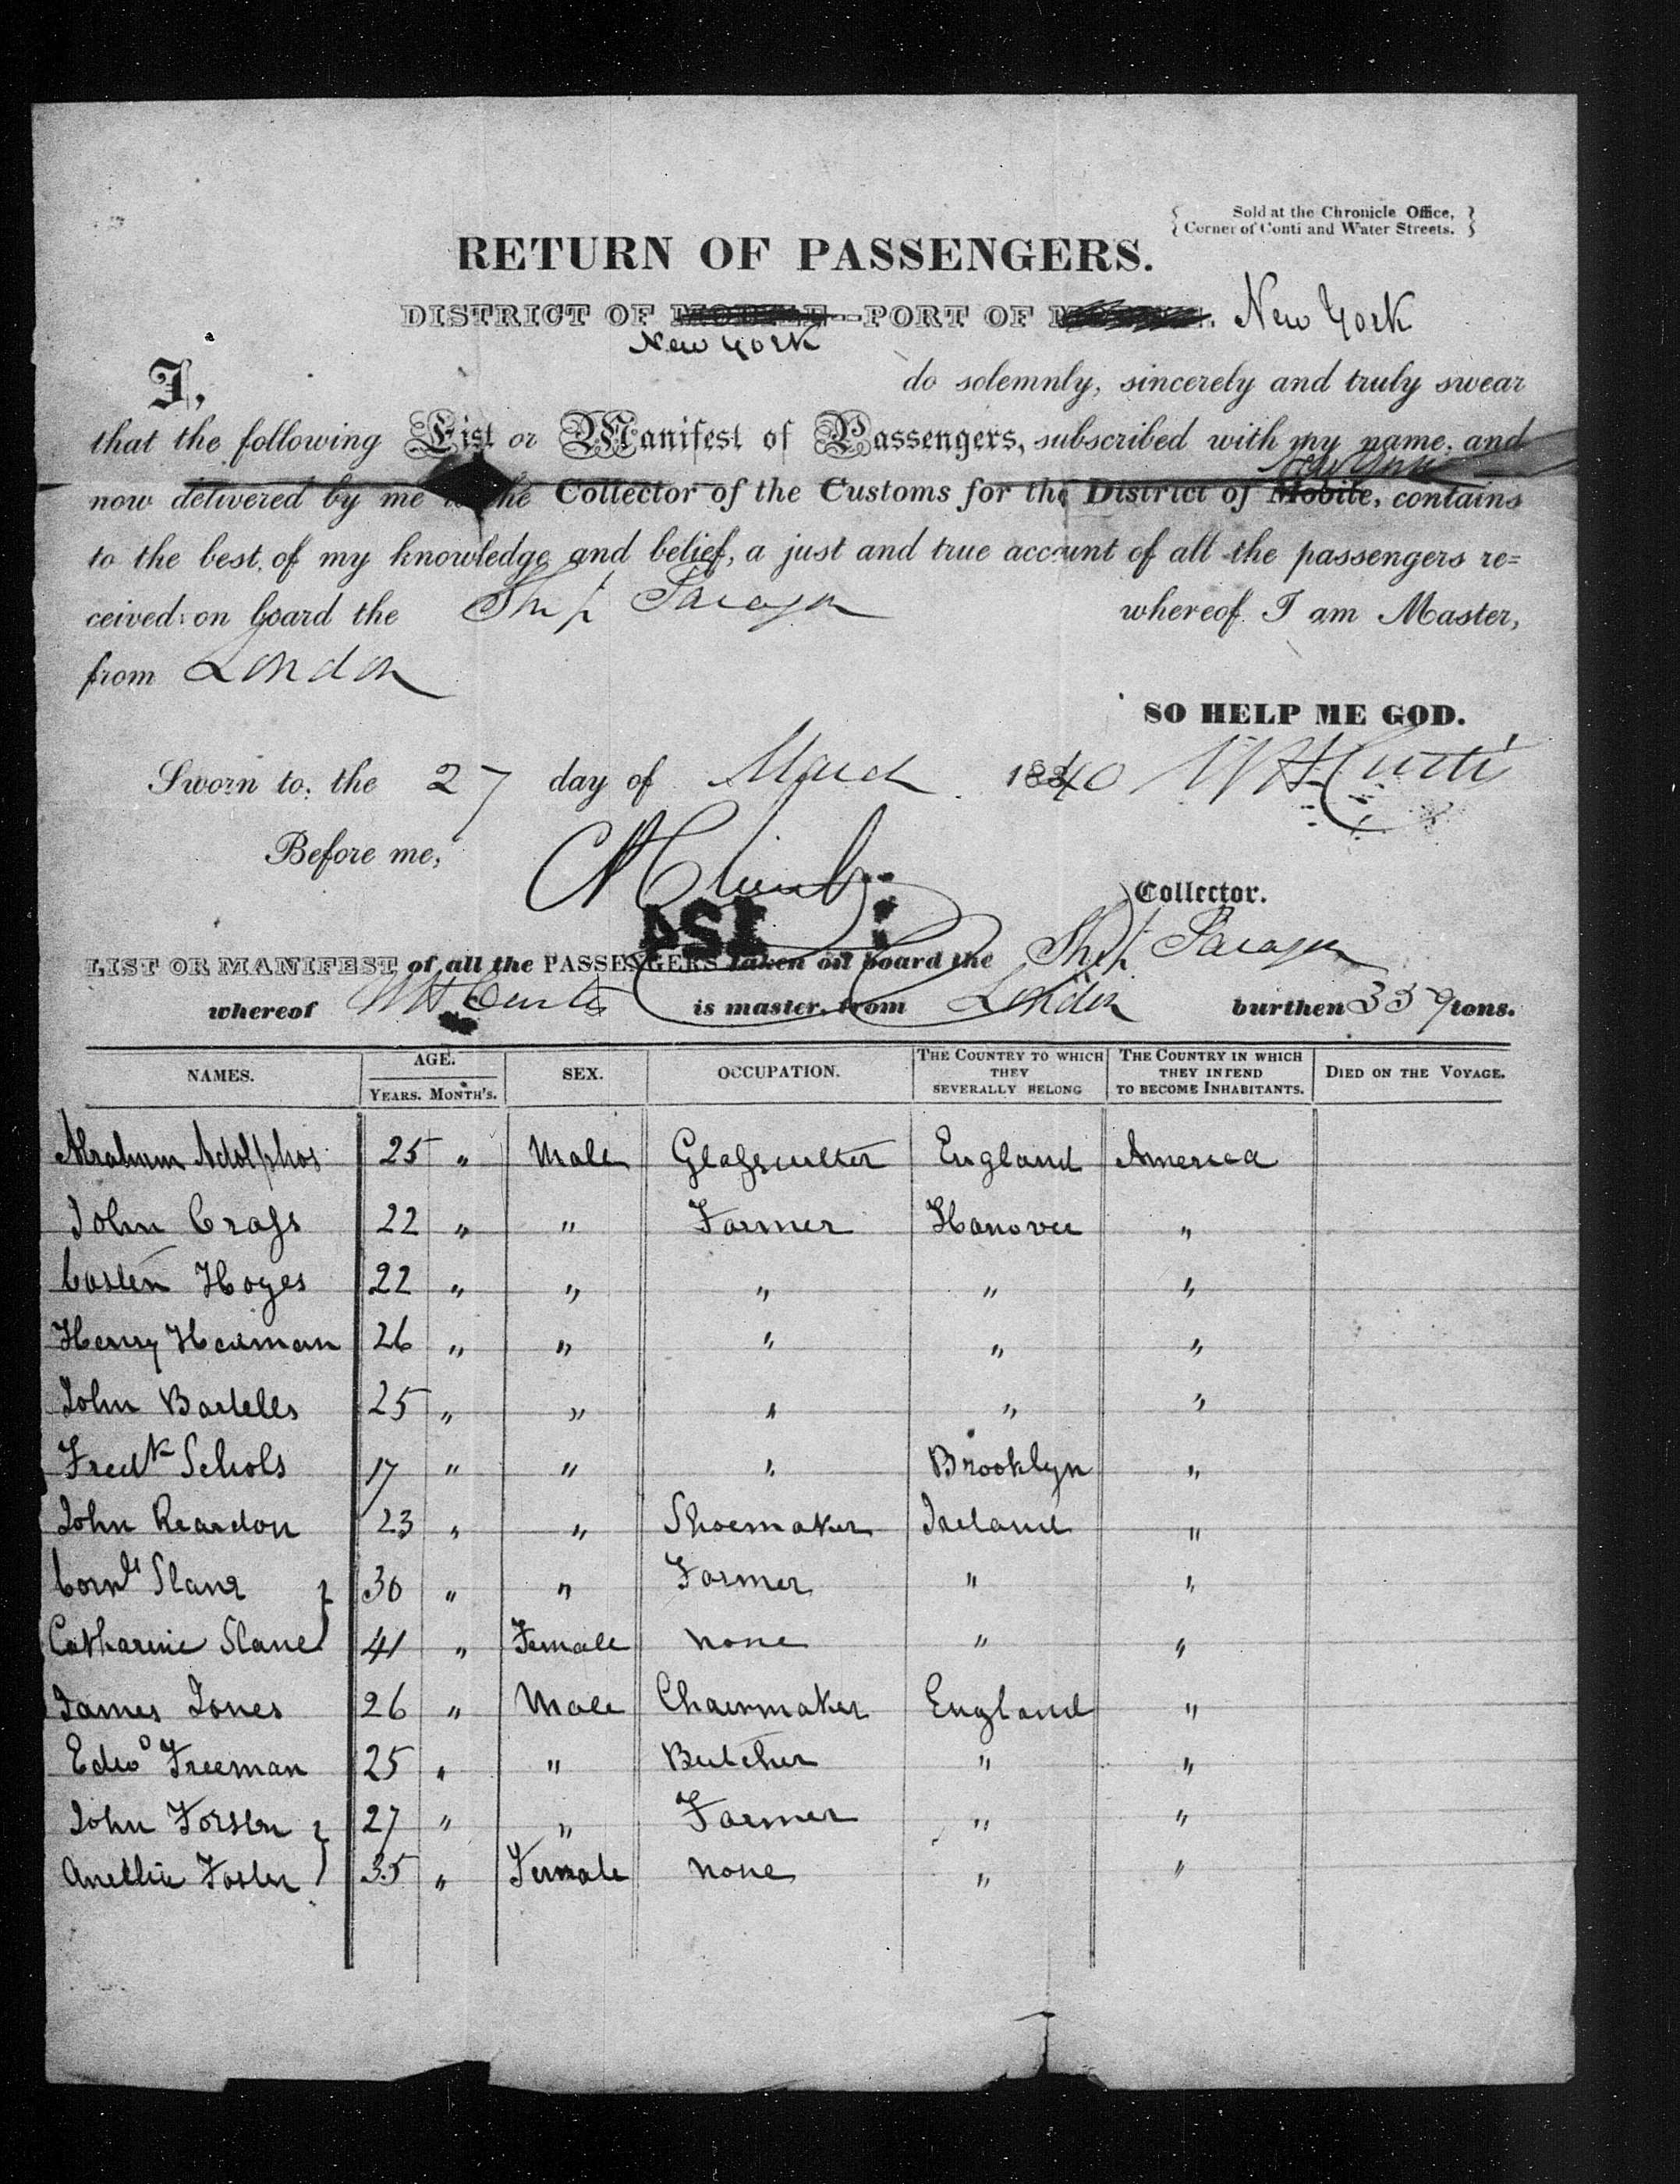 Sold at the Chronicle Office,
Corner of Conti and Water Streets.
RETURN OF PASSENGERS.
DISTRICT OF MOBILE--PORT OF MOBILE. New York
New York
I, do solemnly, sincerely and truly swear
that the following List or Manifest of Passengers, subscribed with my name, and
New York
now delivered by me to the Collector of the Customs for the District of Mobile, contains
to the best of my knowledge and belief, a just and true account of all the passengers re=
ceived on board the Ship Paragon whereof I am Master,
from London
SO HELP ME GOD.
Sworn to, the 27 day of March 1840 W H Curtis
Before me,
Collector.
LIST OR MANIFEST of all the PASSENGERS taken on board the Ship Paragon
whereof W H Curtis is master, from London burthen tons.
NAMES. AGE. SEX. OCCUPATION. THE COUNTRY TO WHICH THEY SEVERALLY BELONG THE COUNTRY IN WHICH THEY INTEND TO BECOME INHABITANTS. DIED ON THE VOYAGE.
YEARS. MONTH'S.
Abraham Adolphos 25 " Male Glasscutter England America
John Crass 22 " " Farmer Hanover "
Hoyes 22 " " " " "
Henry Herman 26 " " " " "
John Bartells 25 " " " " "
Fredk Schols 17 " " " Brooklyn "
John Reardon 23 " " Shoemaker Ireland "
Cornls Slane 30 " " Farmer " "
Catharine Slane 41 " Female none " "
James Jones 26 " Male Chairmaker England "
Edwd Freeman 25 " " Butcher " "
John Forster 27 " " Farmer " "
Foster 35 " Female none " "